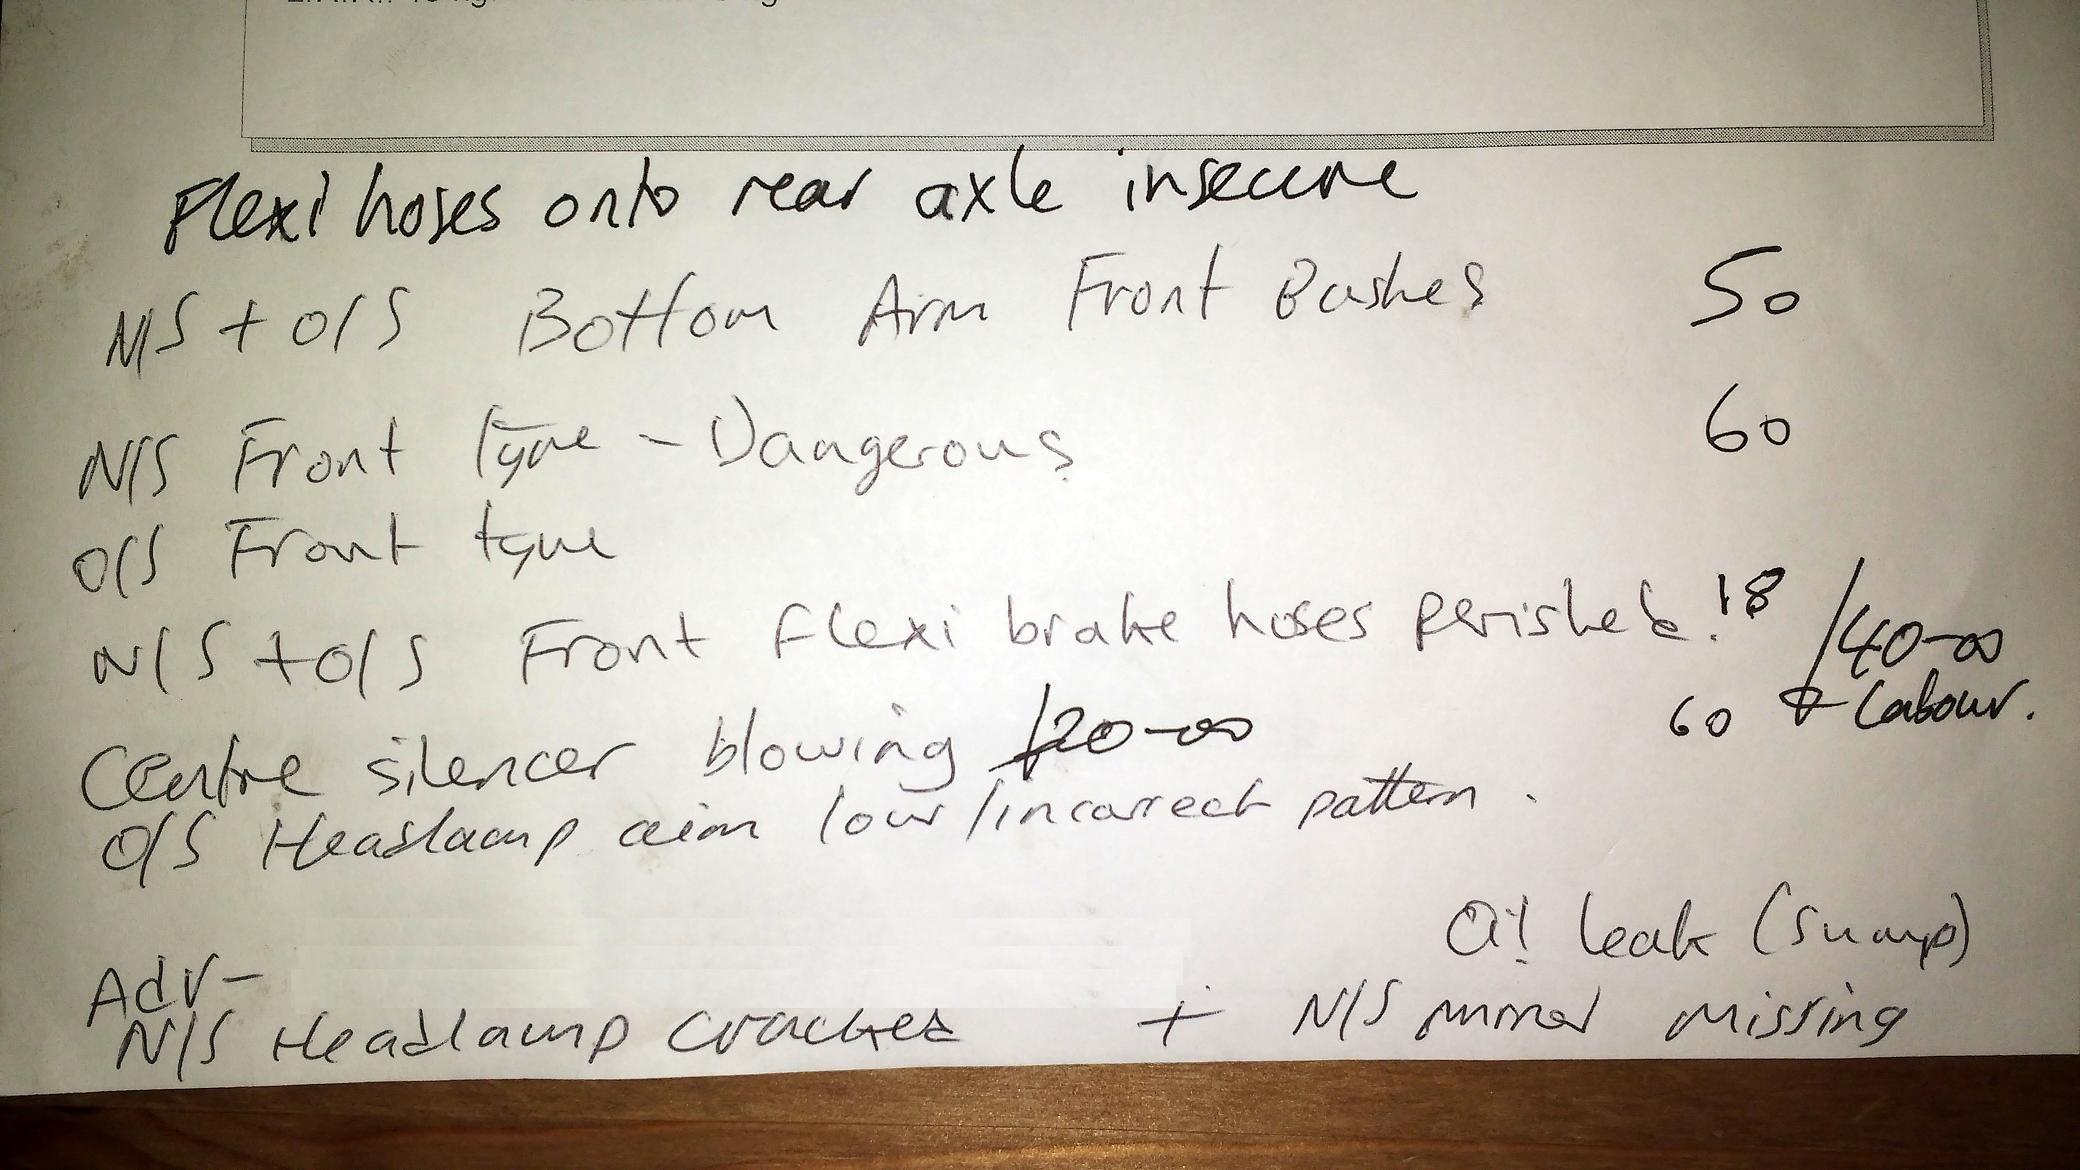 Flexi hoses onto rear axle insecure
N/S + O/S Bottom Arm Front Bushes 50
N/S Front tyre - Dangerous 60
O/S Front tyre
N/S + O/S Front flexi brake hoses perished! 18 /40-00
60 + Labour.
Centre silencer blowing 120-00
O/S Headlamp aim low/incorrect pattern.
Oil leak (sump)
Adv-
N/S Headlamp cracked + N/S mirror missing